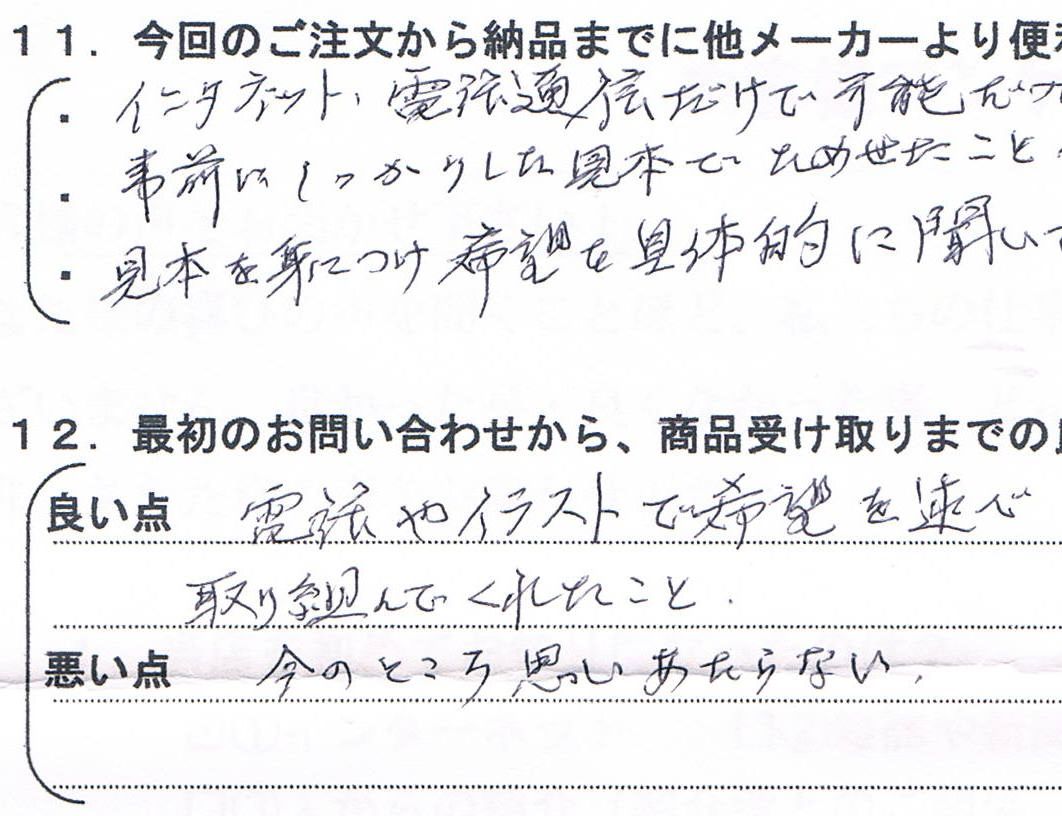 11. 今回のご注文から納品までに他メーカーより便
・インターネット、電話通信だけで可能だっ
・事前にしっかりした見本でためせたこと
・見本を身につけ希望を具体的に聞いて
12. 最初のお問い合わせから、商品受け取りまでの
良い点 電話やイラストで希望を速く
取り組んでくれたこと.
悪い点 今のところ思いあたらない.